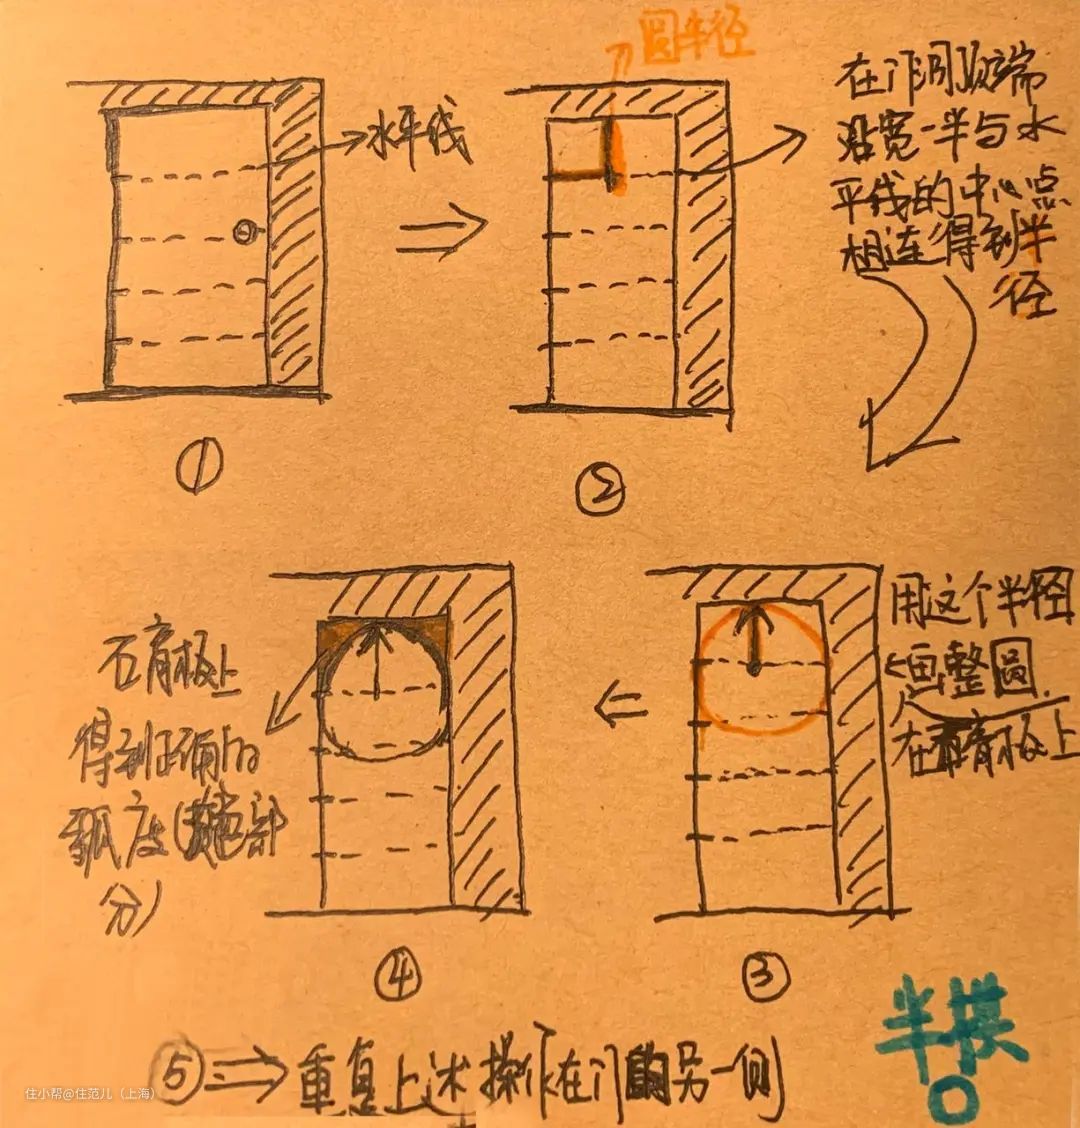 圆半径
水平线
在门洞顶端
沿宽一半与水
平线的中心点
相连得到半
径
①
②
用这个半径
画整圆
在石膏板上
石膏板上
得到正确的
弧度(
部
分)
④
③
⑤ 重复上述操作在门的另一侧
半拱
住小帮@住范儿（上海）